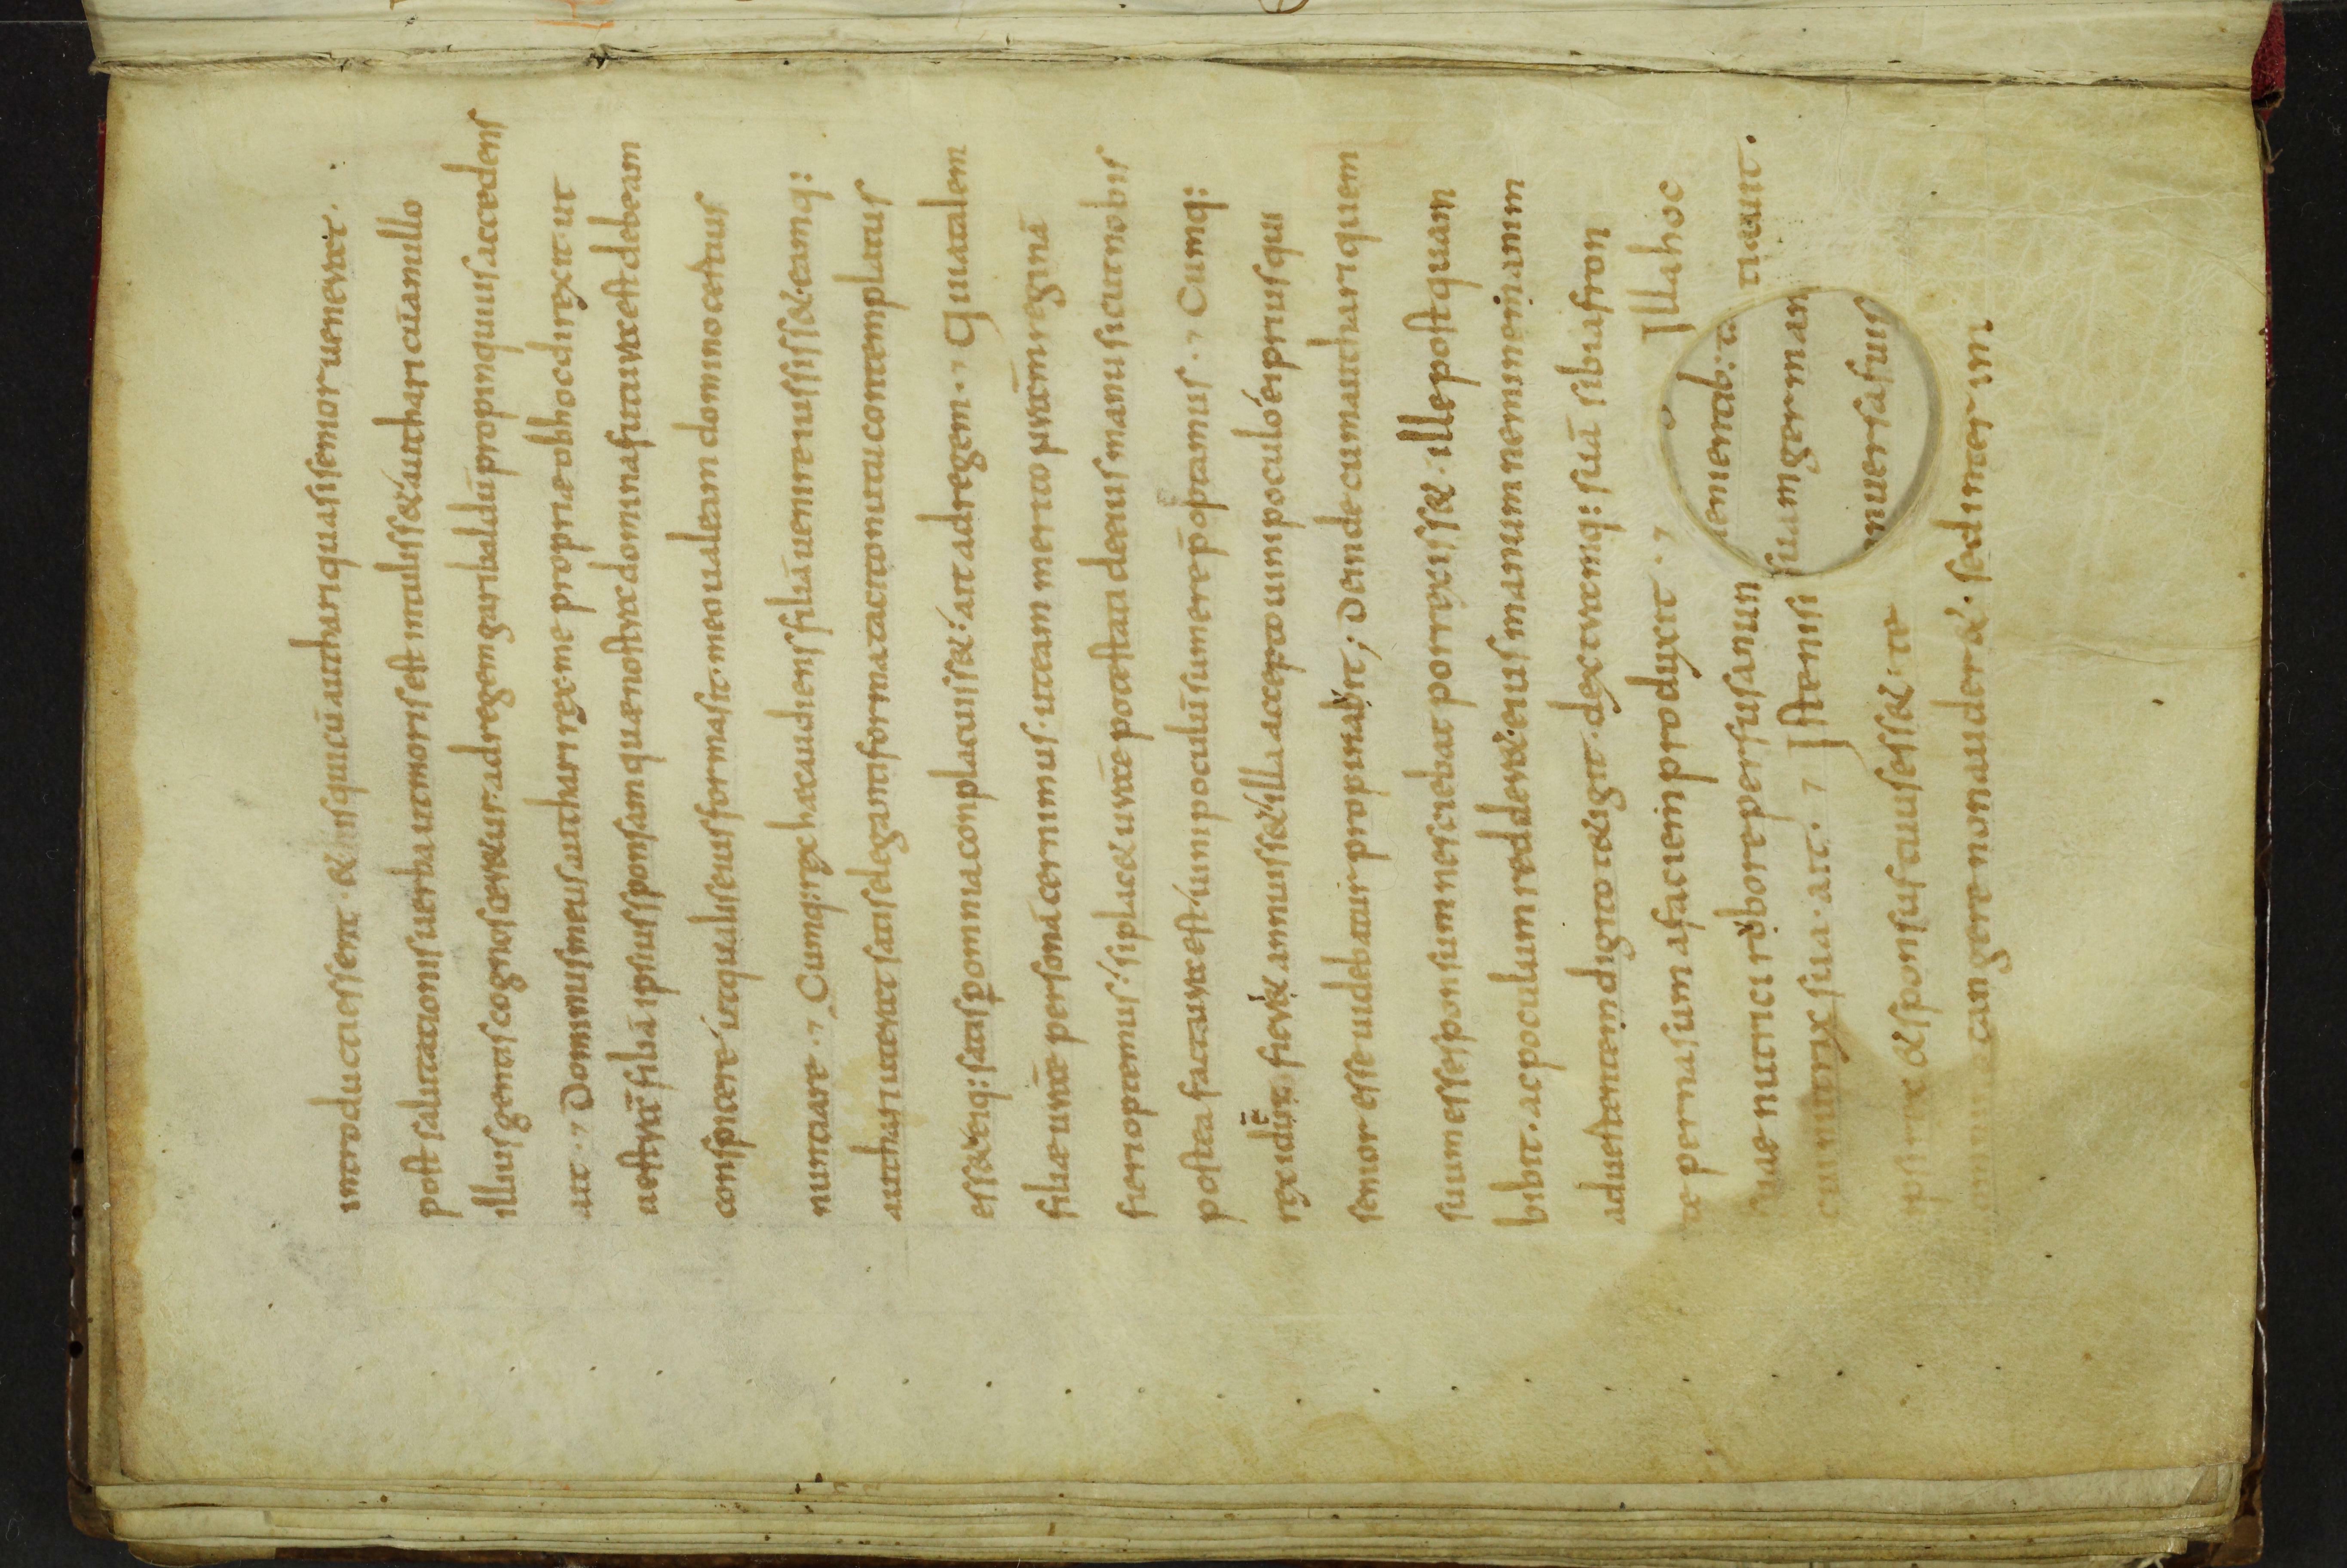 introducti essent · & his qui cū authari quasi senior uenerat ·
post salutationis uerba ut moris est intulisset authari cū ancillo
illius gentis cognoscer&ur ad regem garibaldū propinquius accedens
ait · Dominus meus authari rex me propriae ob hoc direxit ut
uestrā filiā ipsius sponsam quae nostra domina futura est debeam
conspicere ut qualis eius forma sit · meo ualeam domino certius
nuntiare · Cumq: rex haec audiens filiā uenire iussiss& · eamq:
authari ut erat satis eleganti forma tacito nutu contemplatus
ess& eiq: satis p omnia complacuiss& · ait ad regem · Quia talem
filiae urae personā cernimus · ut eam merito nrām reginā
fieri optemus · si plac& urae potestati de eius manu sicut nobis
postea factura est uini poculū sumere p̄optamus · Cumq:
rex id ut fier& annuiss& illa accepto uini poculo ei prius qui
senior esse uidebatur propinauit ; Deinde cum authari quem
suum esse sponsum nesciebat porrexiss& · ille postquam
bibit · ac poculum redder& · eius manum nemine nam
aduertente digito tetigit · dextramq: suā sibi a fron
te per nasum ac faciem produxit · Illa hoc
suae nutrici robore persusa nun tiauit ·
cui nutrix sua · ait · Iste nisi
ipse rex & sponsus tuus ess& · te
omnino tangere non auder& · sed interim
iementab: t
suam german
nuersa suis